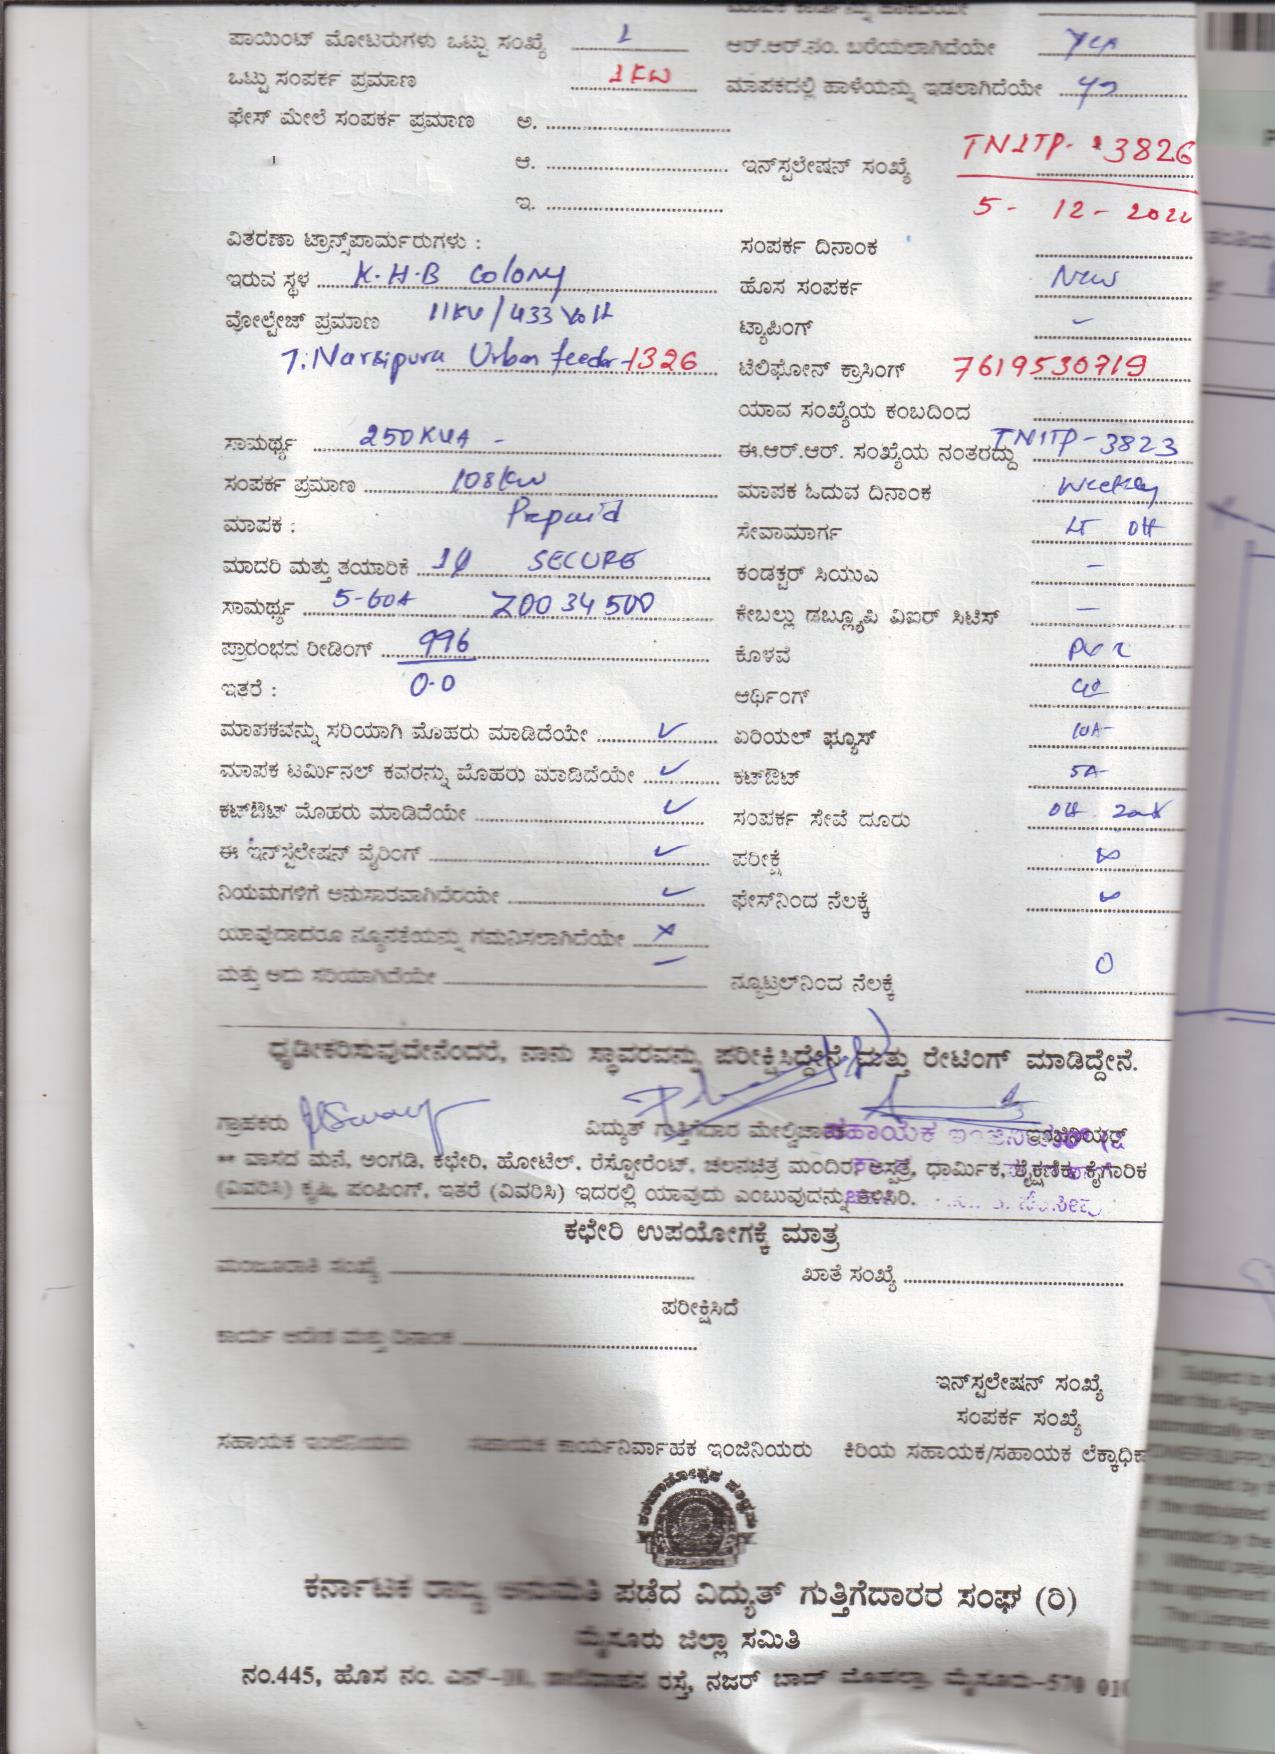 ಪಾಯಿಂಟ್ ಮೋಟರುಗಳು ಒಟ್ಟು ಸಂಖ್ಯೆ 1 ಆರ್.ಆರ್.ನಂ. ಬರೆಯಲಾಗಿದೆಯೇ
ಒಟ್ಟು ಸಂಪರ್ಕ ಪ್ರಮಾಣ 1KW ಮಾಪಕದಲ್ಲಿ ಹಾಳೆಯನ್ನು ಇಡಲಾಗಿದೆಯೇ
ಫೇಸ್ ಮೇಲೆ ಸಂಪರ್ಕ ಪ್ರಮಾಣ ಅ.
ಆ. ಇನ್‌ಸ್ಟಲೇಷನ್ ಸಂಖ್ಯೆ TN1TP- 3826
ಇ. 5- 12-
ವಿತರಣಾ ಟ್ರಾನ್ಸ್‌ಪಾರ್ಮರುಗಳು : ಸಂಪರ್ಕ ದಿನಾಂಕ
ಇರುವ ಸ್ಥಳ K.H.B Colony ಹೊಸ ಸಂಪರ್ಕ New
ವೋಲ್ಟೇಜ್ ಪ್ರಮಾಣ 11KV/433 Volt ಟ್ಯಾಪಿಂಗ್ -
T. Narsipura Urban feeder-1326 ಟೆಲಿಫೋನ್ ಕ್ರಾಸಿಂಗ್ 7619530719
ಯಾವ ಸಂಖ್ಯೆಯ ಕಂಬದಿಂದ
ಸಾಮರ್ಥ್ಯ 250KVA - ಈ.ಆರ್.ಆರ್. ಸಂಖ್ಯೆಯ ನಂತರದ್ದು TN1TP-3823
ಸಂಪರ್ಕ ಪ್ರಮಾಣ 108KW ಮಾಪಕ ಓದುವ ದಿನಾಂಕ Weekly
ಮಾಪಕ : Prepaid ಸೇವಾಮಾರ್ಗ LT OH
ಮಾದರಿ ಮತ್ತು ತಯಾರಿಕೆ 1φ SECURE ಕಂಡಕ್ಟರ್ ಸಿಯುಎ -
ಸಾಮರ್ಥ್ಯ 5-60A Z0034500 ಕೇಬಲ್ಲು ಡಬ್ಲ್ಯೂಪಿ ವಿಐರ್ ಸಿಟಿಸ್ -
ಪ್ರಾರಂಭದ ರೀಡಿಂಗ್ 996 ಕೊಳವೆ
ಇತರೆ : 0.0 ಆರ್ಥಿಂಗ್
ಮಾಪಕವನ್ನು ಸರಿಯಾಗಿ ಮೊಹರು ಮಾಡಿದೆಯೇ ✓ ಏರಿಯಲ್ ಫ್ಯೂಸ್ 10A-
ಮಾಪಕ ಟರ್ಮಿನಲ್ ಕವರನ್ನು ಮೊಹರು ಮಾಡಿದೆಯೇ ✓ ಕಟ್‌ಔಟ್ 5A-
ಕಟ್‌ಔಟ್ ಮೊಹರು ಮಾಡಿದೆಯೇ ✓ ಸಂಪರ್ಕ ಸೇವೆ ದೂರು OH
ಈ ಇನ್‌ಸ್ಟಲೇಷನ್ ವೈರಿಂಗ್ ✓ ಪರೀಕ್ಷೆ ∞
ನಿಯಮಗಳಿಗೆ ಅನುಸಾರವಾಗಿದೆರಯೇ ✓ ಫೇಸ್‌ನಿಂದ ನೆಲಕ್ಕೆ ∞
ಯಾವುದಾದರೂ ನ್ಯೂನತೆಯನ್ನು ಗಮನಿಸಲಾಗಿದೆಯೇ ✗
ಮತ್ತು ಅದು ಸರಿಯಾಗಿದೆಯೇ - ನ್ಯೂಟ್ರಲ್‌ನಿಂದ ನೆಲಕ್ಕೆ 0
ಧೃಡೀಕರಿಸುವುದೇನೆಂದರೆ, ನಾನು ಸ್ಥಾವರವನ್ನು ಪರೀಕ್ಷಿಸಿದ್ದೇನೆ ಮತ್ತು ರೇಟಿಂಗ್ ಮಾಡಿದ್ದೇನೆ.
ಗ್ರಾಹಕರು ವಿದ್ಯುತ್ ಗುತ್ತಿಗೆದಾರ ಮೇಲ್ವಿಚಾರಕ ಇಂಜಿನಿಯರ್
** ವಾಸದ ಮನೆ, ಅಂಗಡಿ, ಕಛೇರಿ, ಹೋಟೆಲ್, ರೆಸ್ಟೋರೆಂಟ್, ಚಲನಚಿತ್ರ ಮಂದಿರ, ಆಸ್ಪತ್ರೆ, ಧಾರ್ಮಿಕ, ಶೈಕ್ಷಣಿಕ, ಕೈಗಾರಿಕ
(ವಿವರಿಸಿ) ಕೃಷಿ, ಪಂಪಿಂಗ್, ಇತರೆ (ವಿವರಿಸಿ) ಇದರಲ್ಲಿ ಯಾವುದು ಎಂಬುವುದನ್ನು ತಿಳಿಸಿರಿ.
ಕಛೇರಿ ಉಪಯೋಗಕ್ಕೆ ಮಾತ್ರ
ಮಂಜೂರಾತಿ ಸಂಖ್ಯೆ ಖಾತೆ ಸಂಖ್ಯೆ
ಪರೀಕ್ಷಿಸಿದೆ
ಕಾರ್ಯ ಆದೇಶ ಮತ್ತು ದಿನಾಂಕ
ಇನ್‌ಸ್ಟಲೇಷನ್ ಸಂಖ್ಯೆ
ಸಂಪರ್ಕ ಸಂಖ್ಯೆ
ಸಹಾಯಕ ಇಂಜಿನಿಯರು ಸಹಾಯಕ ಕಾರ್ಯನಿರ್ವಾಹಕ ಇಂಜಿನಿಯರು ಕಿರಿಯ ಸಹಾಯಕ/ಸಹಾಯಕ ಲೆಕ್ಕಾಧಿಕಾ
ಕರ್ನಾಟಕ ರಾಜ್ಯ ಅನುಮತಿ ಪಡೆದ ವಿದ್ಯುತ್ ಗುತ್ತಿಗೆದಾರರ ಸಂಘ (ರಿ)
ಮೈಸೂರು ಜಿಲ್ಲಾ ಸಮಿತಿ
ನಂ.445, ಹೊಸ ನಂ. ರಸ್ತೆ, ನಜರ್ ಬಾದ್ ಮೊಹಲ್ಲಾ, ಮೈಸೂರು-570 010